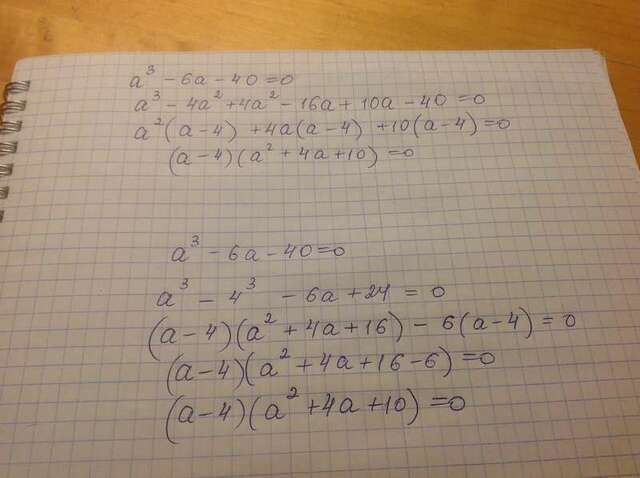 a³ - 6a - 40 = 0
a³ - 4a² + 4a² - 16a + 10a - 40 = 0
a²(a - 4) + 4a(a - 4) + 10(a - 4) = 0
(a - 4)(a² + 4a + 10) = 0
a³ - 6a - 40 = 0
a³ - 4³ - 6a + 24 = 0
(a - 4)(a² + 4a + 16) - 6(a - 4) = 0
(a - 4)(a² + 4a + 16 - 6) = 0
(a - 4)(a² + 4a + 10) = 0